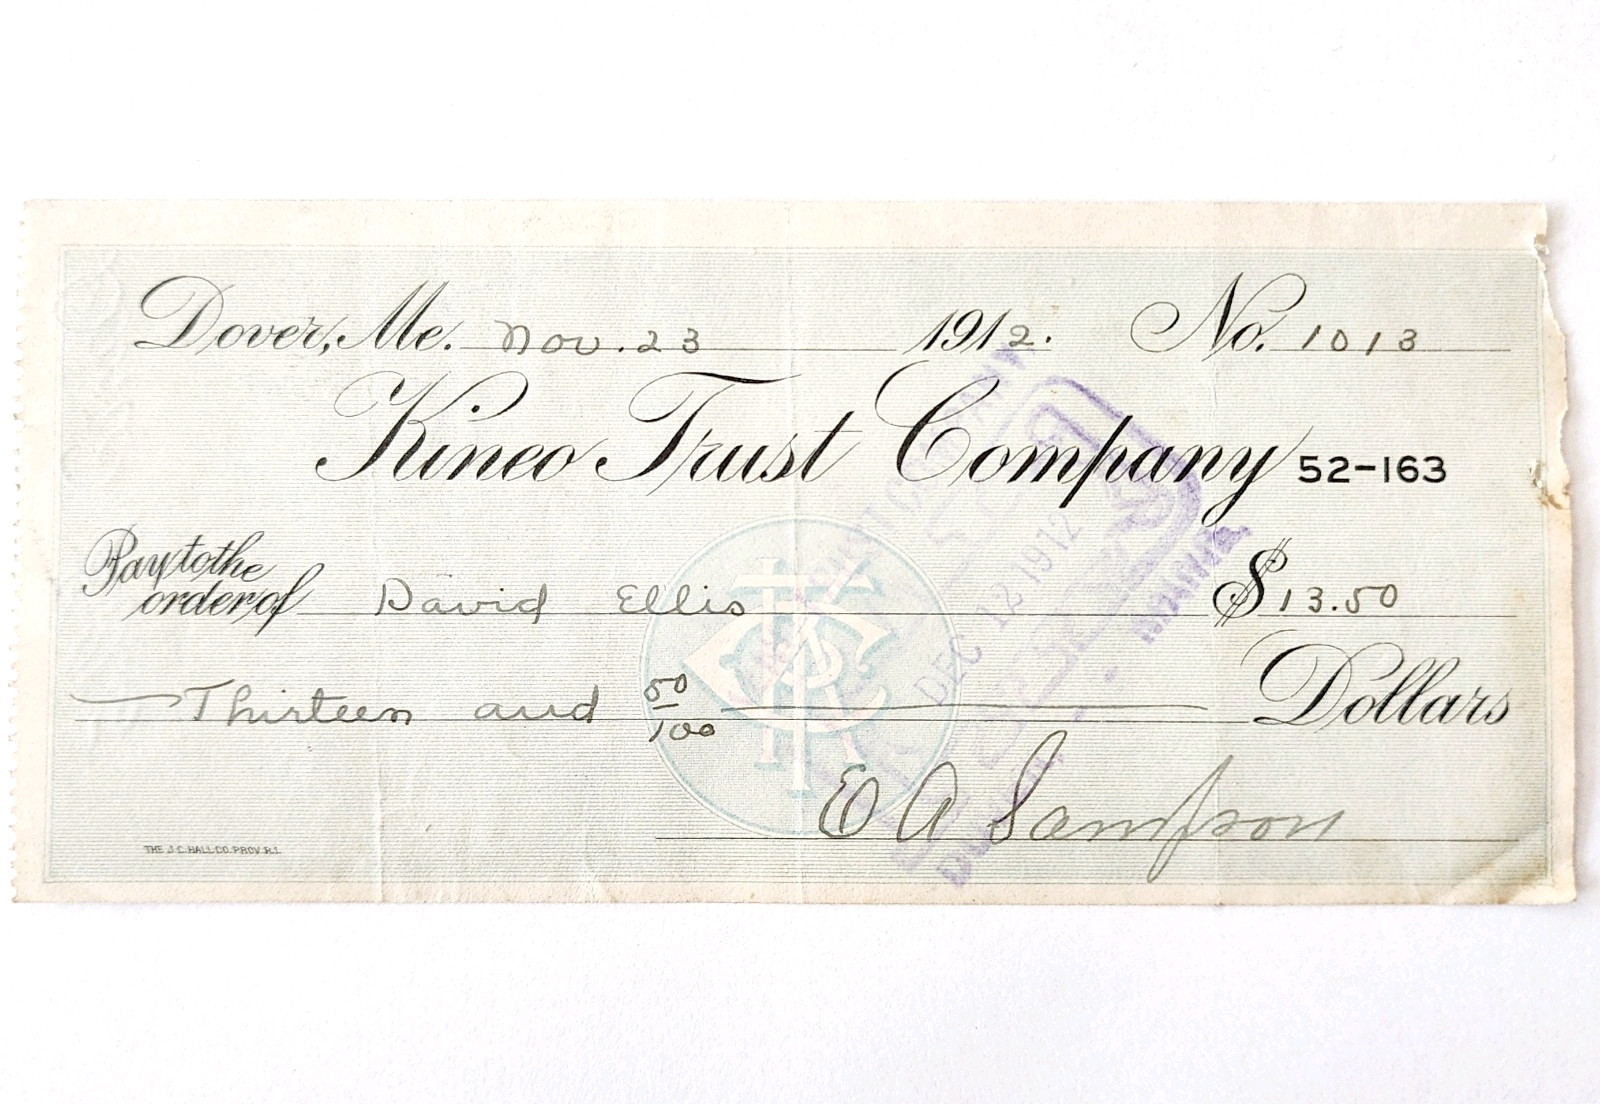 Dover, Me. Nov. 23 1912. No. 1013
Kineo Trust Company 52-163
Pay to the
order of David Ellis $13.50
Thirteen and 50/100 Dollars
E A Sampson
THE J.C. HALL CO. PROV. R.I.
DEC 12 1912